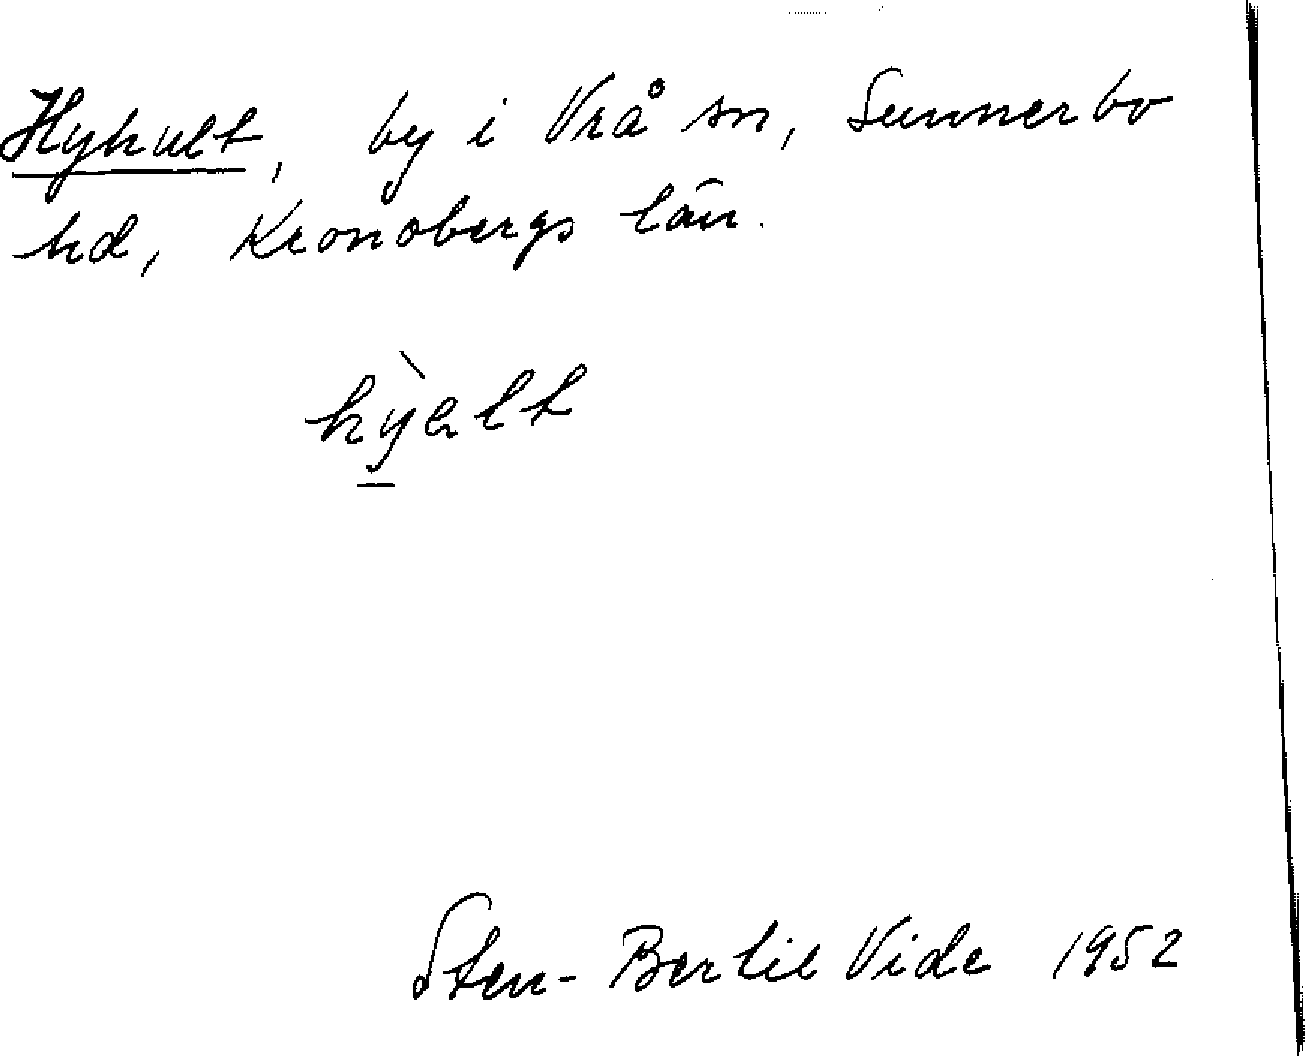 Hyhult, by i Vrå sn, Sunnerbo
hd, Kronobergs län.
hỳalt
Sten-Bertil Vide 1952